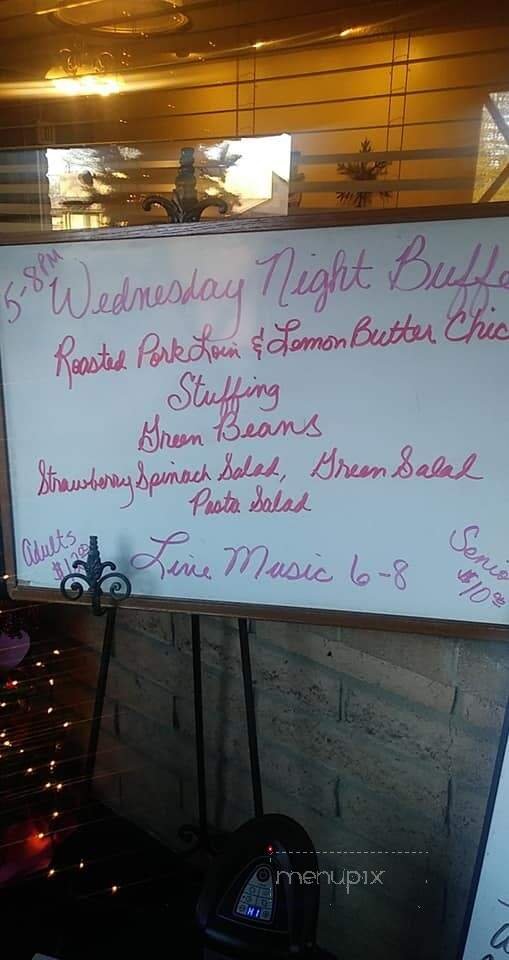 5-8PM
Wednesday Night Buffe
Roasted Pork Loin & Lemon Butter Chic
Stuffing
Green Beans
Strawberry Spinach Salad, Green Salad
Pasta Salad
Adults
Live Music 6-8
Senio
$10.00
HI
menupix